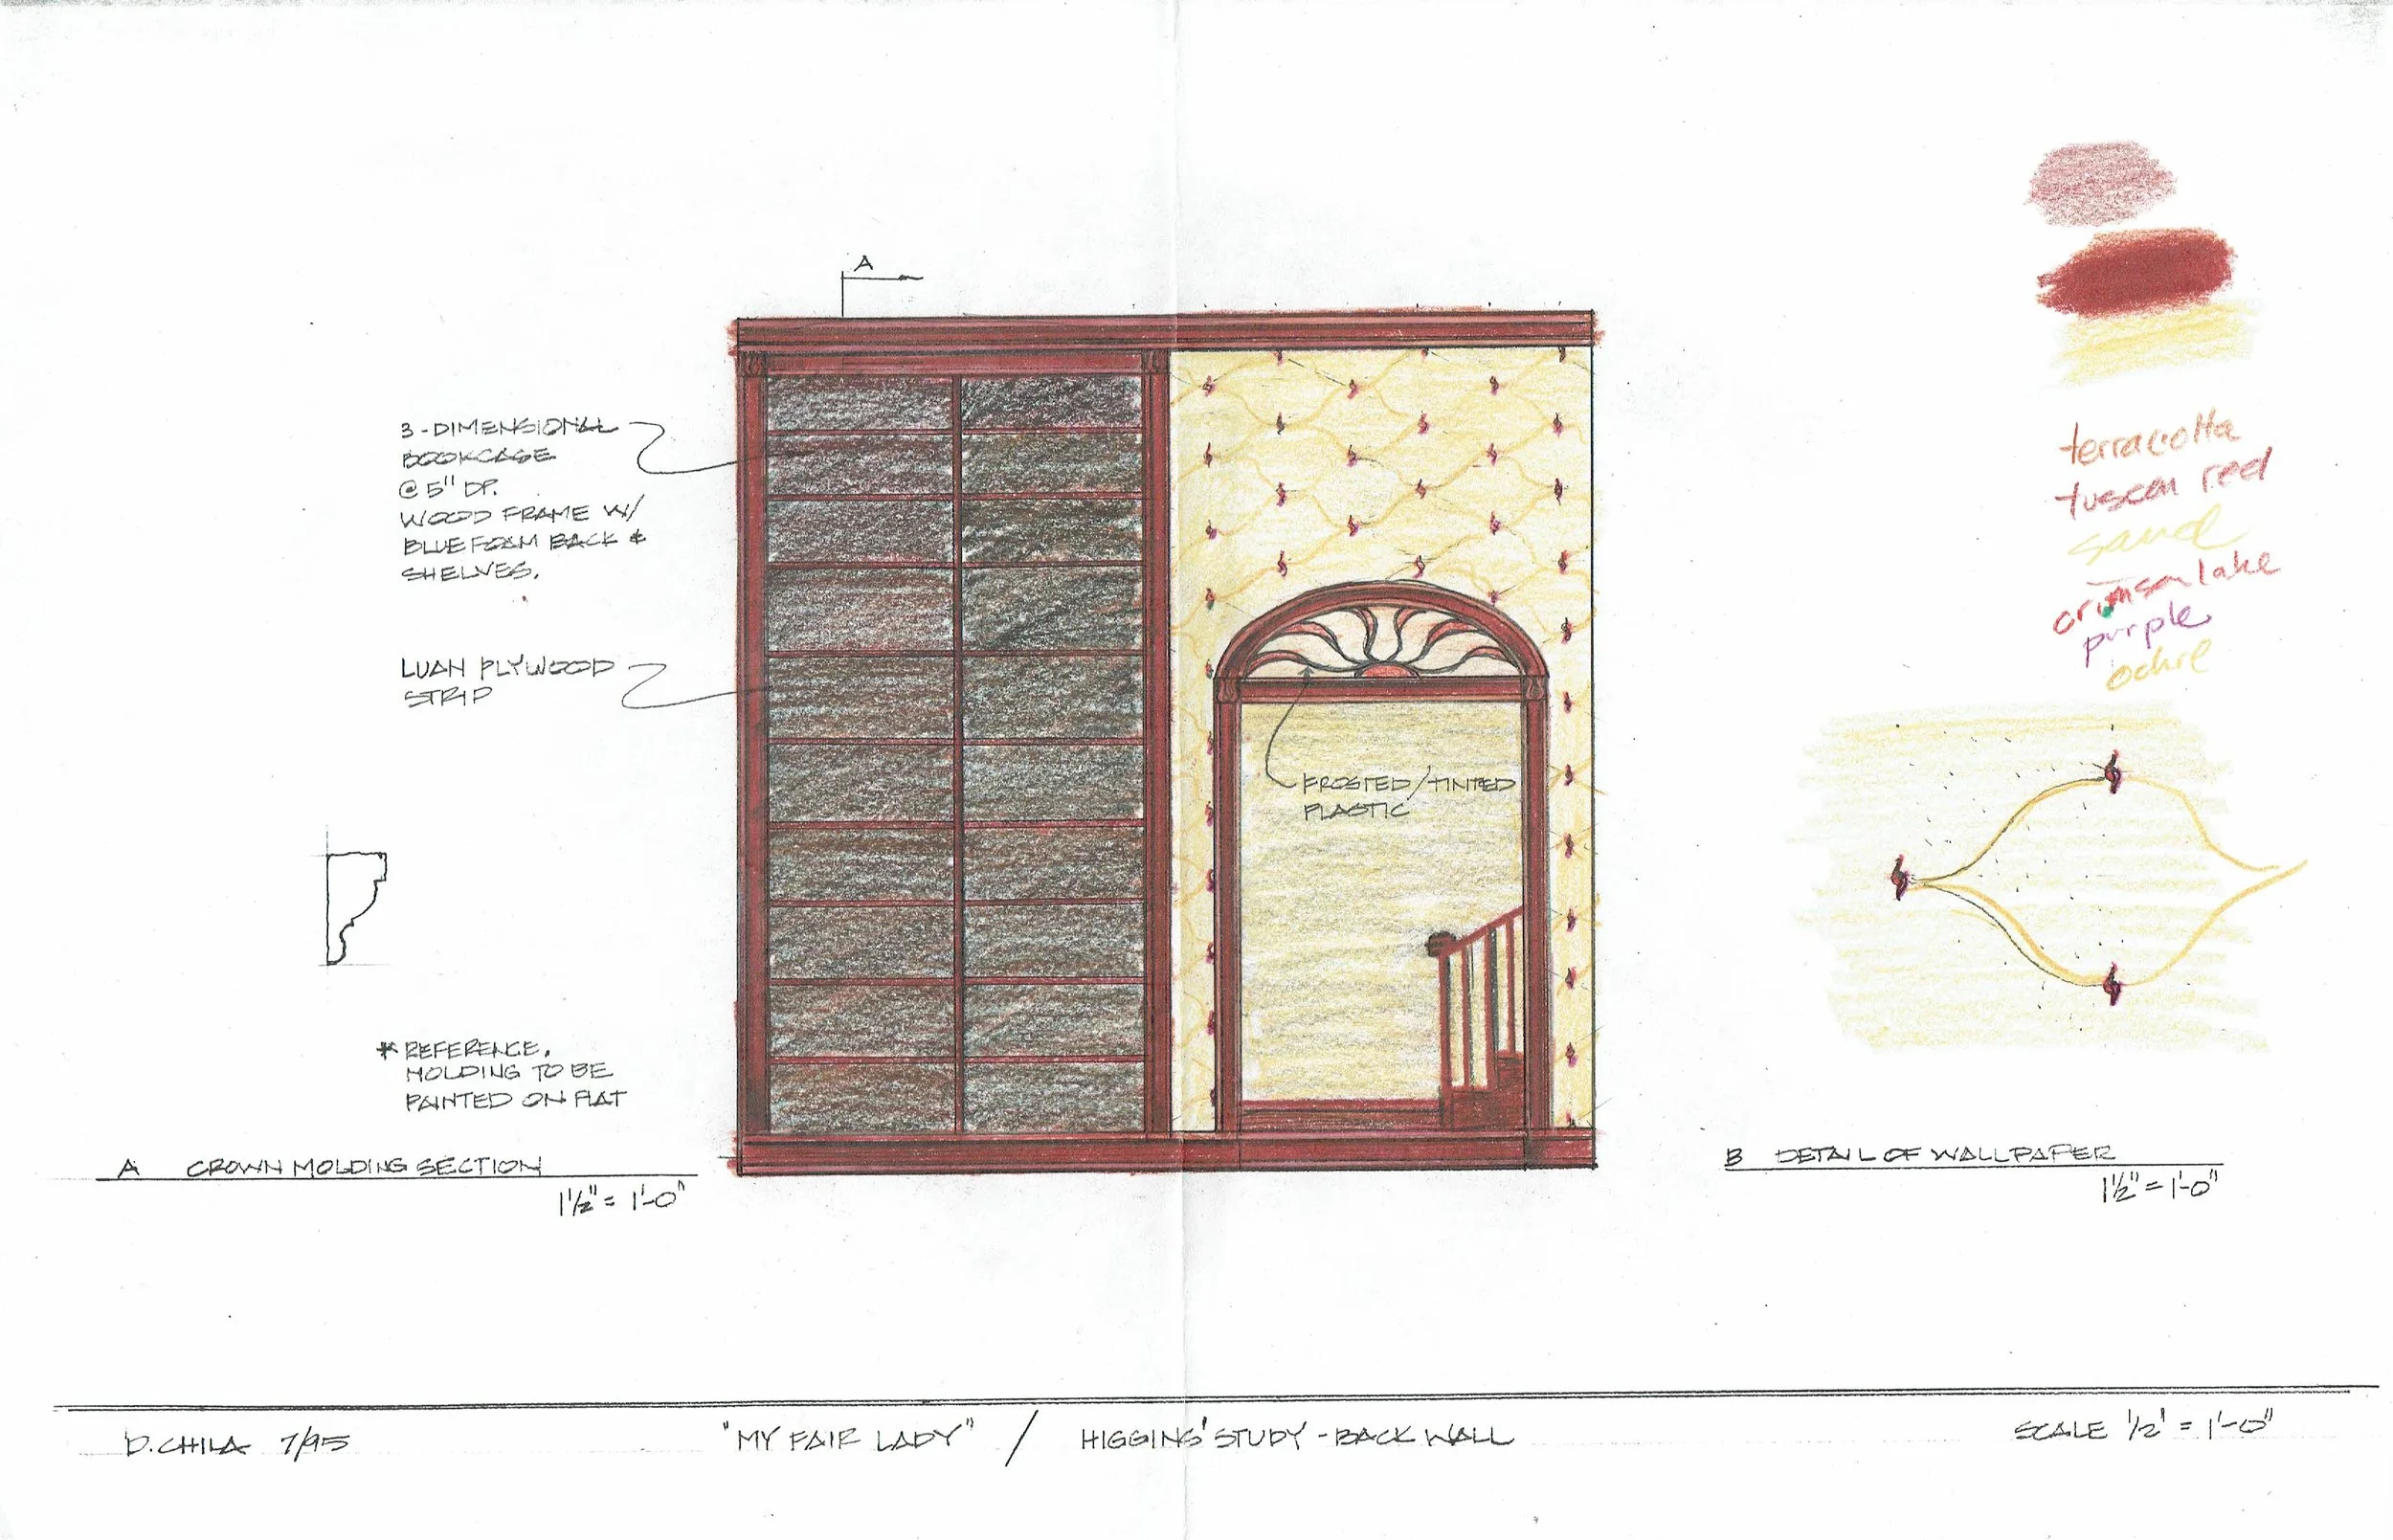 A
3-DIMENSIONAL
BOOKCASE
@ 5" DP.
WOOD FRAME W/
BLUE FOAM BACK &
SHELVES.
LUAN PLYWOOD
STRIP
FROSTED/TINTED
PLASTIC
terracotta
tuscan red
sand
crimson lake
purple
ochre
* REFERENCE,
MOLDING TO BE
PAINTED ON FLAT
A CROWN MOLDING SECTION
1½" = 1'-0"
B DETAIL OF WALLPAPER
1½" = 1'-0"
D. CHILA 7/95
"MY FAIR LADY" / HIGGINS' STUDY - BACK WALL
SCALE ½' = 1'-0"